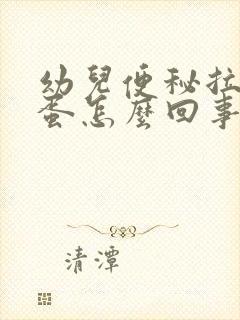 幼兒便秘拉
蛋怎麼回事
清潭